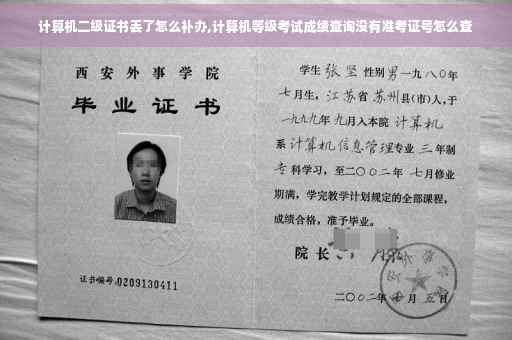 计算机二级证书丢了怎么补办,计算机等级考试成绩查询没有准考证号怎么查
西安外事学院
毕业证书
证书编号:0209130411
学生 张坚 性别 男 一九八〇年
七月生,江苏省 苏州县(市)人,于
一九九九年 九月入本院 计算机
系 计算机信息管理专业 三 年制
专科学习,至二〇〇二年 七月修业
期满,学完教学计划规定的全部课程,
成绩合格,准予毕业。
院长
二〇〇二年 月 五日